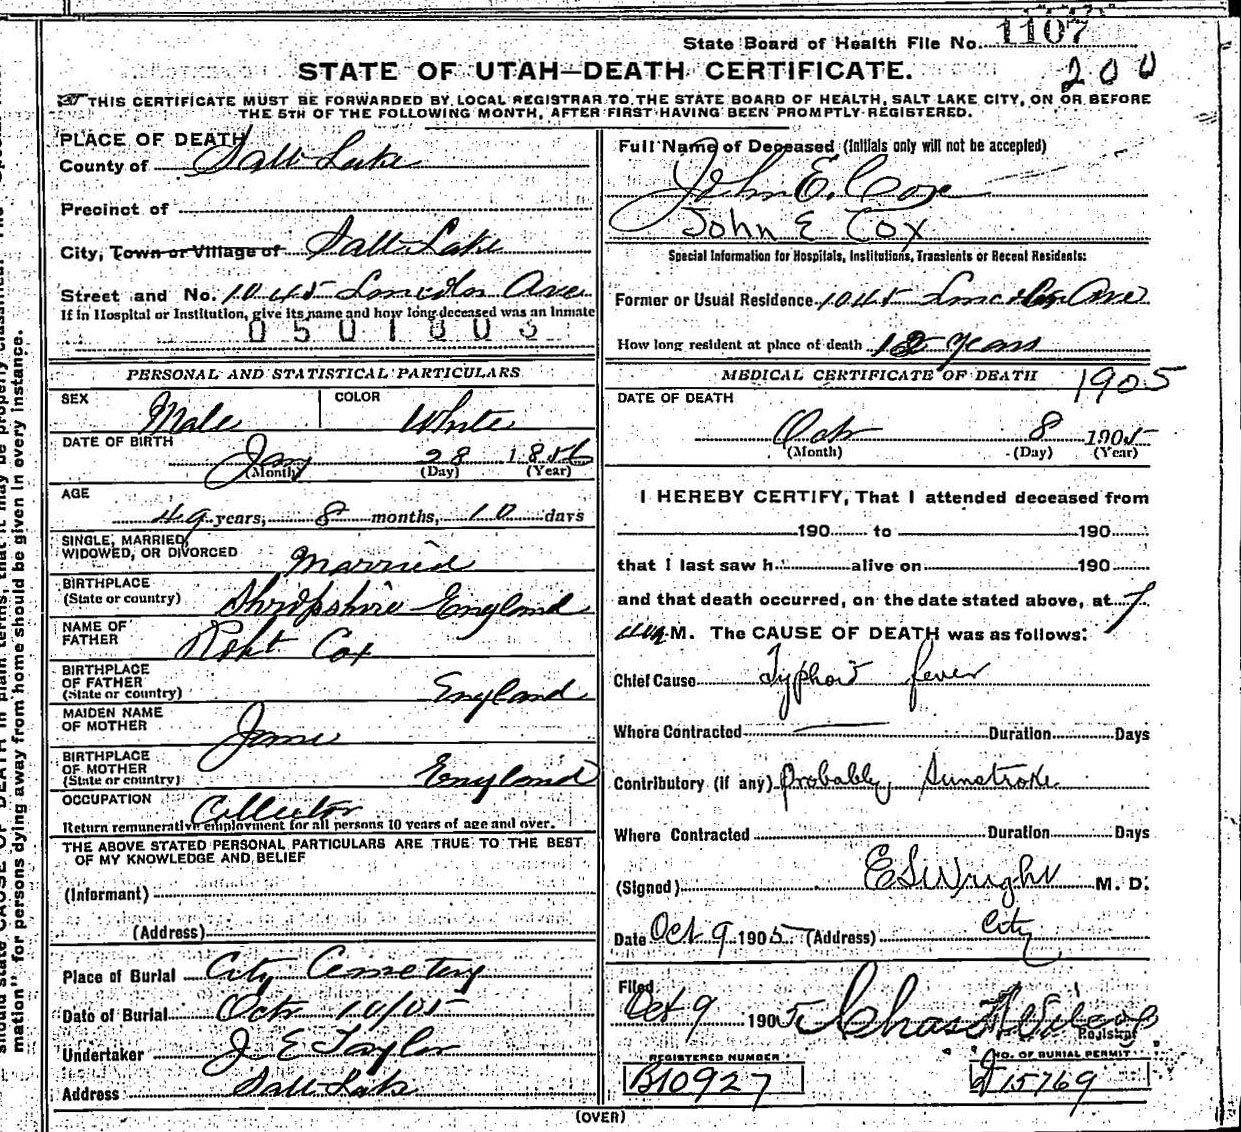 State Board of Health File No. 1107
200
STATE OF UTAH—DEATH CERTIFICATE.
THIS CERTIFICATE MUST BE FORWARDED BY LOCAL REGISTRAR TO THE STATE BOARD OF HEALTH, SALT LAKE CITY, ON OR BEFORE
THE 5TH OF THE FOLLOWING MONTH, AFTER FIRST HAVING BEEN PROMPTLY REGISTERED.
PLACE OF DEATH
County of Salt Lake
Precinct of
City, Town or Village of Salt Lake
Street and No. 1045 Lincoln Ave
If in Hospital or Institution, give its name and how long deceased was an Inmate
0501803
PERSONAL AND STATISTICAL PARTICULARS
SEX Male COLOR White
DATE OF BIRTH
Jan 28 1856
(Month) (Day) (Year)
AGE
49 years, 8 months, 10 days
SINGLE, MARRIED,
WIDOWED, OR DIVORCED Married
BIRTHPLACE
(State or country) Shropshire England
NAME OF
FATHER Robt Cox
BIRTHPLACE
OF FATHER
(State or country) England
MAIDEN NAME
OF MOTHER Jane
BIRTHPLACE
OF MOTHER
(State or country) England
OCCUPATION Collector
Return remunerative employment for all persons 10 years of age and over.
THE ABOVE STATED PERSONAL PARTICULARS ARE TRUE TO THE BEST
OF MY KNOWLEDGE AND BELIEF
(Informant)
(Address)
Place of Burial City Cemetery
Date of Burial Oct 10/05
Undertaker J E Taylor
Address Salt Lake
Full Name of Deceased (Initials only will not be accepted)
John E. Cox
John E Cox
Special Information for Hospitals, Institutions, Transients or Recent Residents:
Former or Usual Residence 1045 Lincoln Ave
How long resident at place of death 12 years
MEDICAL CERTIFICATE OF DEATH 1905
DATE OF DEATH
Oct 8 1905
(Month) (Day) (Year)
I HEREBY CERTIFY, That I attended deceased from
190 to 190
that I last saw h alive on 190
and that death occurred, on the date stated above, at 7
M. The CAUSE OF DEATH was as follows:
Chief Cause Typhoid fever
Where Contracted Duration Days
Contributory (if any) Probably Sunstroke
Where Contracted Duration Days
(Signed) E S Wright M. D.
Date Oct 9 1905 (Address) City
Filed
Oct 9 1905 Chas
Registrar
REGISTERED NUMBER
B10927
NO. OF BURIAL PERMIT
15769
(OVER)
mation" for persons dying away from home should be given in every instance.